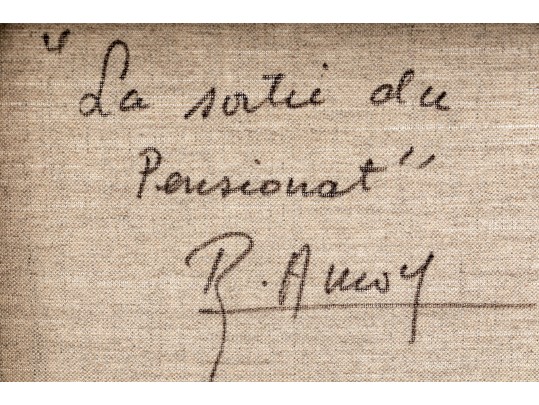 "La sortie du
Pensionat"
R. Amoy